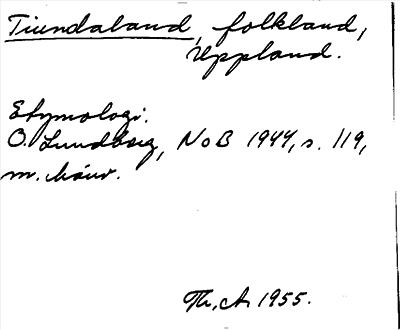 Tiundaland, folkland,
Uppland.
Etymologi.
O. Lundberg, NoB 1944, s. 119,
m. hänv.
Th, A, 1955.